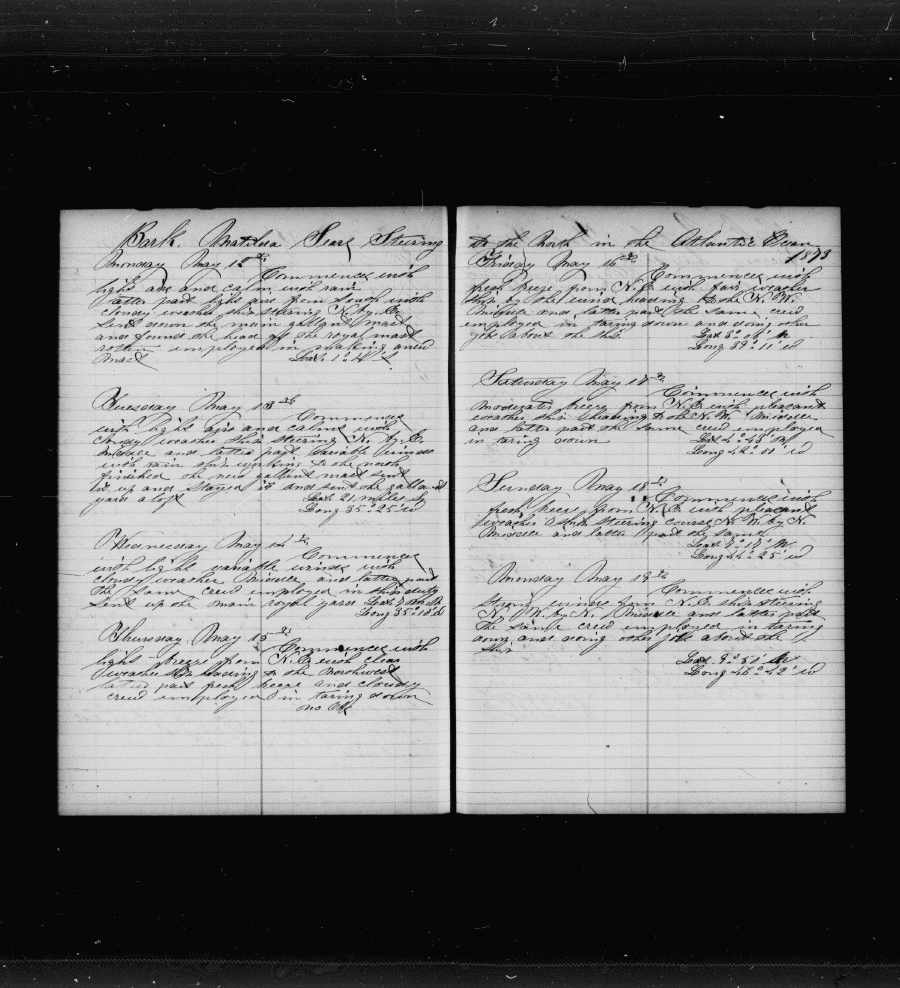 Bark Matilda Sears Steering
Monday May 12th
Commences with
light airs and calm with rain
latter part light airs from South with
cloudy weather ship steering N. by E.
Send down the main gallant mast
and found the head of the royal mast
rotten employed in making a new
mast Lat. 1° S
Tuesday May 13th
Commences
with light airs and calms with
cloudy weather ship steering N. by E.
middle and latter part variable winds
with rain ship working to the north
finished the new gallant mast sent
it up and stayed it and sent the gallant
yard aloft Lat. 21 miles S
Long 35° 25' W
Wednesday May 14th
Commences
with light variable winds with
cloudy weather middle and latter part
the same crew employed in ship duty
Send up the main royal yards Lat.
Long 35° 10' W
Thursday May 15th
Commences with
light breeze from N.E. with clear
weather ship heading to the Northwest
latter part fresh breeze and cloudy
crew employed in taring down
no Ob
to the North in the Atlantic Ocean
1873
Friday May 16th
Commences with
fresh breeze from N.E. with fair weather
ship by the wind heading to the N.W.
middle and latter part the same crew
employed in taring down and doing other
jobs about the ship. Lat 3°
Long 39° 11' W
Saturday May 17th
Commences with
moderate breeze from N.E. with pleasant
weather ship heading to the N.W. middle
and latter part the same crew employed
in taring down Lat 4° 49' N
Long 42° W
Sunday May 18th
Commences with
fresh breeze from N.E. with pleasant
weather ship steering course N.W. by N.
middle and latter part the same
Lat N
Long 44° 25' W
Monday May 19th
Commences with
strong winds from N.E. ship steering
N.W. by N. middle and latter part
the same crew employed in taring
down and doing other jobs about the
ship
Lat. 9° 51' N
Long 46° 42' W